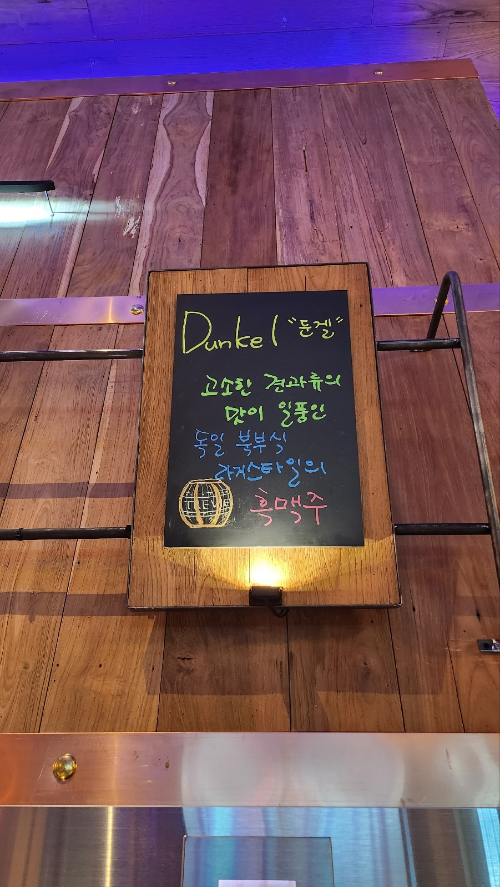 Dunkel "둔켈"
고소한 견과류의
맛이 일품인
독일 북부식
라거스타일의
흑맥주